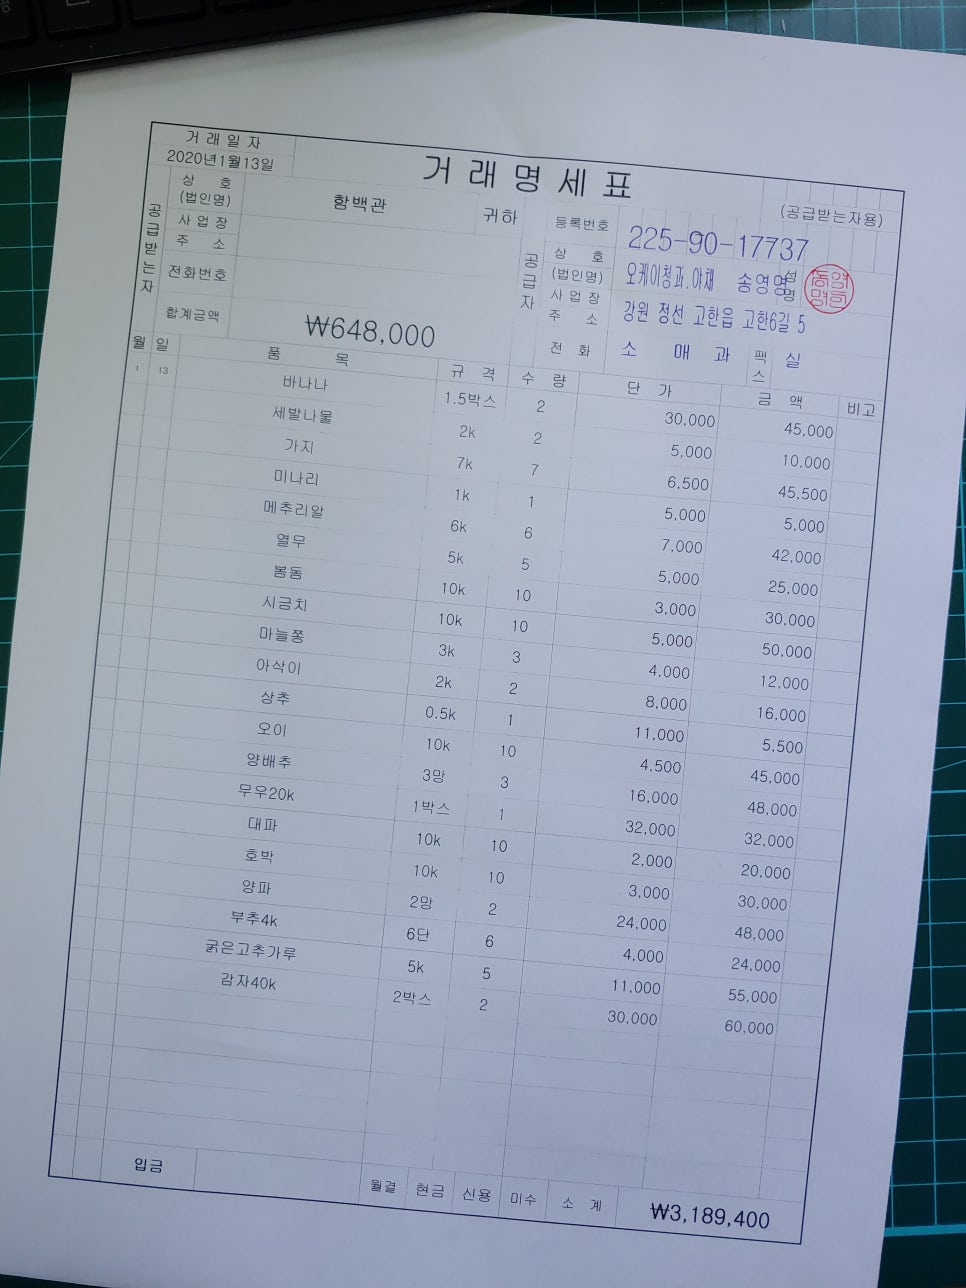 거래일자
2020년1월13일
거래명세표
(공급받는자용)
공급받는자
상 호
(법인명)
함백관 귀하
사업장
주 소
전화번호
합계금액
₩648,000
공급자
등록번호 225-90-17737
상 호
(법인명)
오케이청과.야채 송영영
성명
사업장
주 소
강원 정선 고한읍 고한6길 5
전 화 소 매 과 팩스 실
월 일 품 목 규 격 수 량 단 가 금 액 비고
1 13 바나나 1.5박스 2 30,000 45,000
세발나물 2k 2 5,000 10,000
가지 7k 7 6,500 45,500
미나리 1k 1 5,000 5,000
메추리알 6k 6 7,000 42,000
열무 5k 5 5,000 25,000
봉동 10k 10 3,000 30,000
시금치 10k 10 5,000 50,000
마늘쫑 3k 3 4,000 12,000
아삭이 2k 2 8,000 16,000
상추 0.5k 1 11,000 5,500
오이 10k 10 4,500 45,000
양배추 3망 3 16,000 48,000
무우20k 1박스 1 32,000 32,000
대파 10k 10 2,000 20,000
호박 10k 10 3,000 30,000
양파 2망 2 24,000 48,000
부추4k 6단 6 4,000 24,000
굵은고추가루 5k 5 11,000 55,000
감자40k 2박스 2 30,000 60,000
입금 월결 현금 신용 미수 소 계 ₩3,189,400